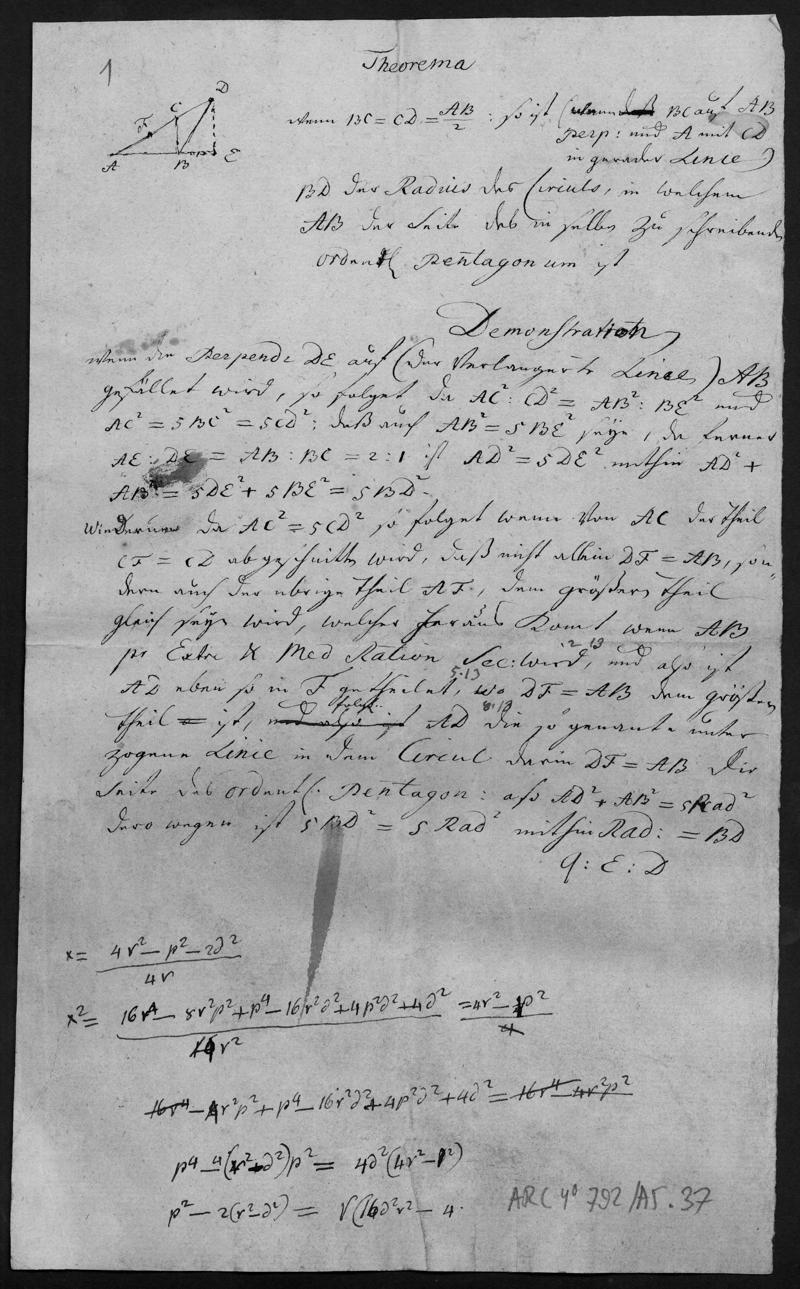 1
Theorema
D
C
F
A B E
wenn BC = CD = AB/2 : so ist (wenn BC auf AB
perp: und A mit CD
in gerader Linie)
BD der Radius des Circuls, in welchem
AB der Seite des in selbes zu schreibenden
ordentl Pentagonum ist
Demonstration
wenn die Perpend: DE auf (der Verlangerte Linee) AB
gefället wird, so folget da AC²: CD² = AB²: BE² und
AC² = 5BC² = 5CD²: daß auch AB² = 5BE² seye, da ferner
AE: DE = AB : BC = 2:1 ist AD² = 5DE² mithin AD² +
AB² = 5DE² + 5BE² = 5BD².
Wiederum da AC² = 5CD² so folget wenn von AC der theil
CF = CD abgeschnitt wird, daß nicht allein DF = AB, son„
dern auch der ubrige theil AF, dem größern theil
gleich seye wird, welcher heraus komt wenn AB
pr Extr & Med Ration Sec: wird, und also ist
AD eben so in F getheilet, wo DF = AB dem größten
theil ist, AD die so genante unter
zogene Linie in dem Circul darin DF = AB die
Seite des ordentl. Pentagon: als AD² + AB² = 5Rad²
dero wegen ist 5BD² = 5 Rad² mithin Rad: = BD
q: E: D
x = 4r² – p² – 2∂² / 4r
x² = 16r⁴ – 8r²p² + p⁴ – 16r²∂² + 4p²∂² + 4∂² / 16r² = 4r² – p² / 4
16r⁴ – 4r²p² + p⁴ – 16r²∂² + 4p²∂² + 4∂² = 16r⁴ – 4r²p²
p⁴ – 4(r² – ∂²)p² = 4∂²(4r² – 1²)
p² – 2(r² – ∂²) = √(16∂²r² – 4.
ARC 4° 792/A5.37